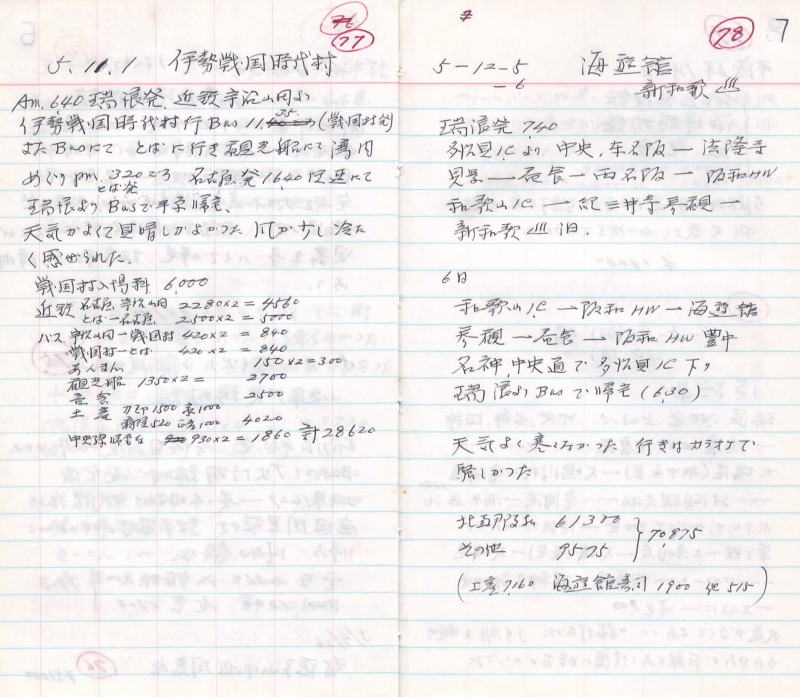 77
5.11.1 伊勢戦国時代村
Am. 640 瑞浪発、近鉄宇治山田より
伊勢戦国時代村行Bus 11.35 (戦国村割
またBusにて とばに行き観光船にて湾内
めぐり pm. 320ころ 名古屋発1640快速にて
とば発
瑞浪よりBusで平京帰宅、
天気がよくて見晴しがよかつた 风が少し冷た
く感ぜられた。
戦国村入場料 6,000
近鉄 名古屋 宇治山田 2280×2 = 4560
とば―名古屋 2500×2 = 5000
バス 宇治山田―戦国村 420×2 = 840
戦国村―とば 420×2 = 840
あんまん 150×2=300
観光船 1350×2= 2700
昼食 2500
土産 1500 1000
520 1000 4020
中央線帰宅 930×2 = 1860 計28620
78
7
5-12-5 海遊館
-6 新和歌巡
瑞浪発 740
多治見ICより 中央、东名阪―法隆寺
見学―昼食―西名阪―阪和HW
和歌山IC―紀三井寺参観―
新和歌巡泊.
6日
和歌山IC―阪和HW―海遊館
参観―昼食―阪和HW 豊中
名神 中央道で多治見IC下り
瑞浪よりBusで帰宅 (6.30)
天気よく寒くなかつた 行きはカラオケで
騒しかつた
61300
その他 9575
70875
(土産7,160 海遊館寿司1900 他515)